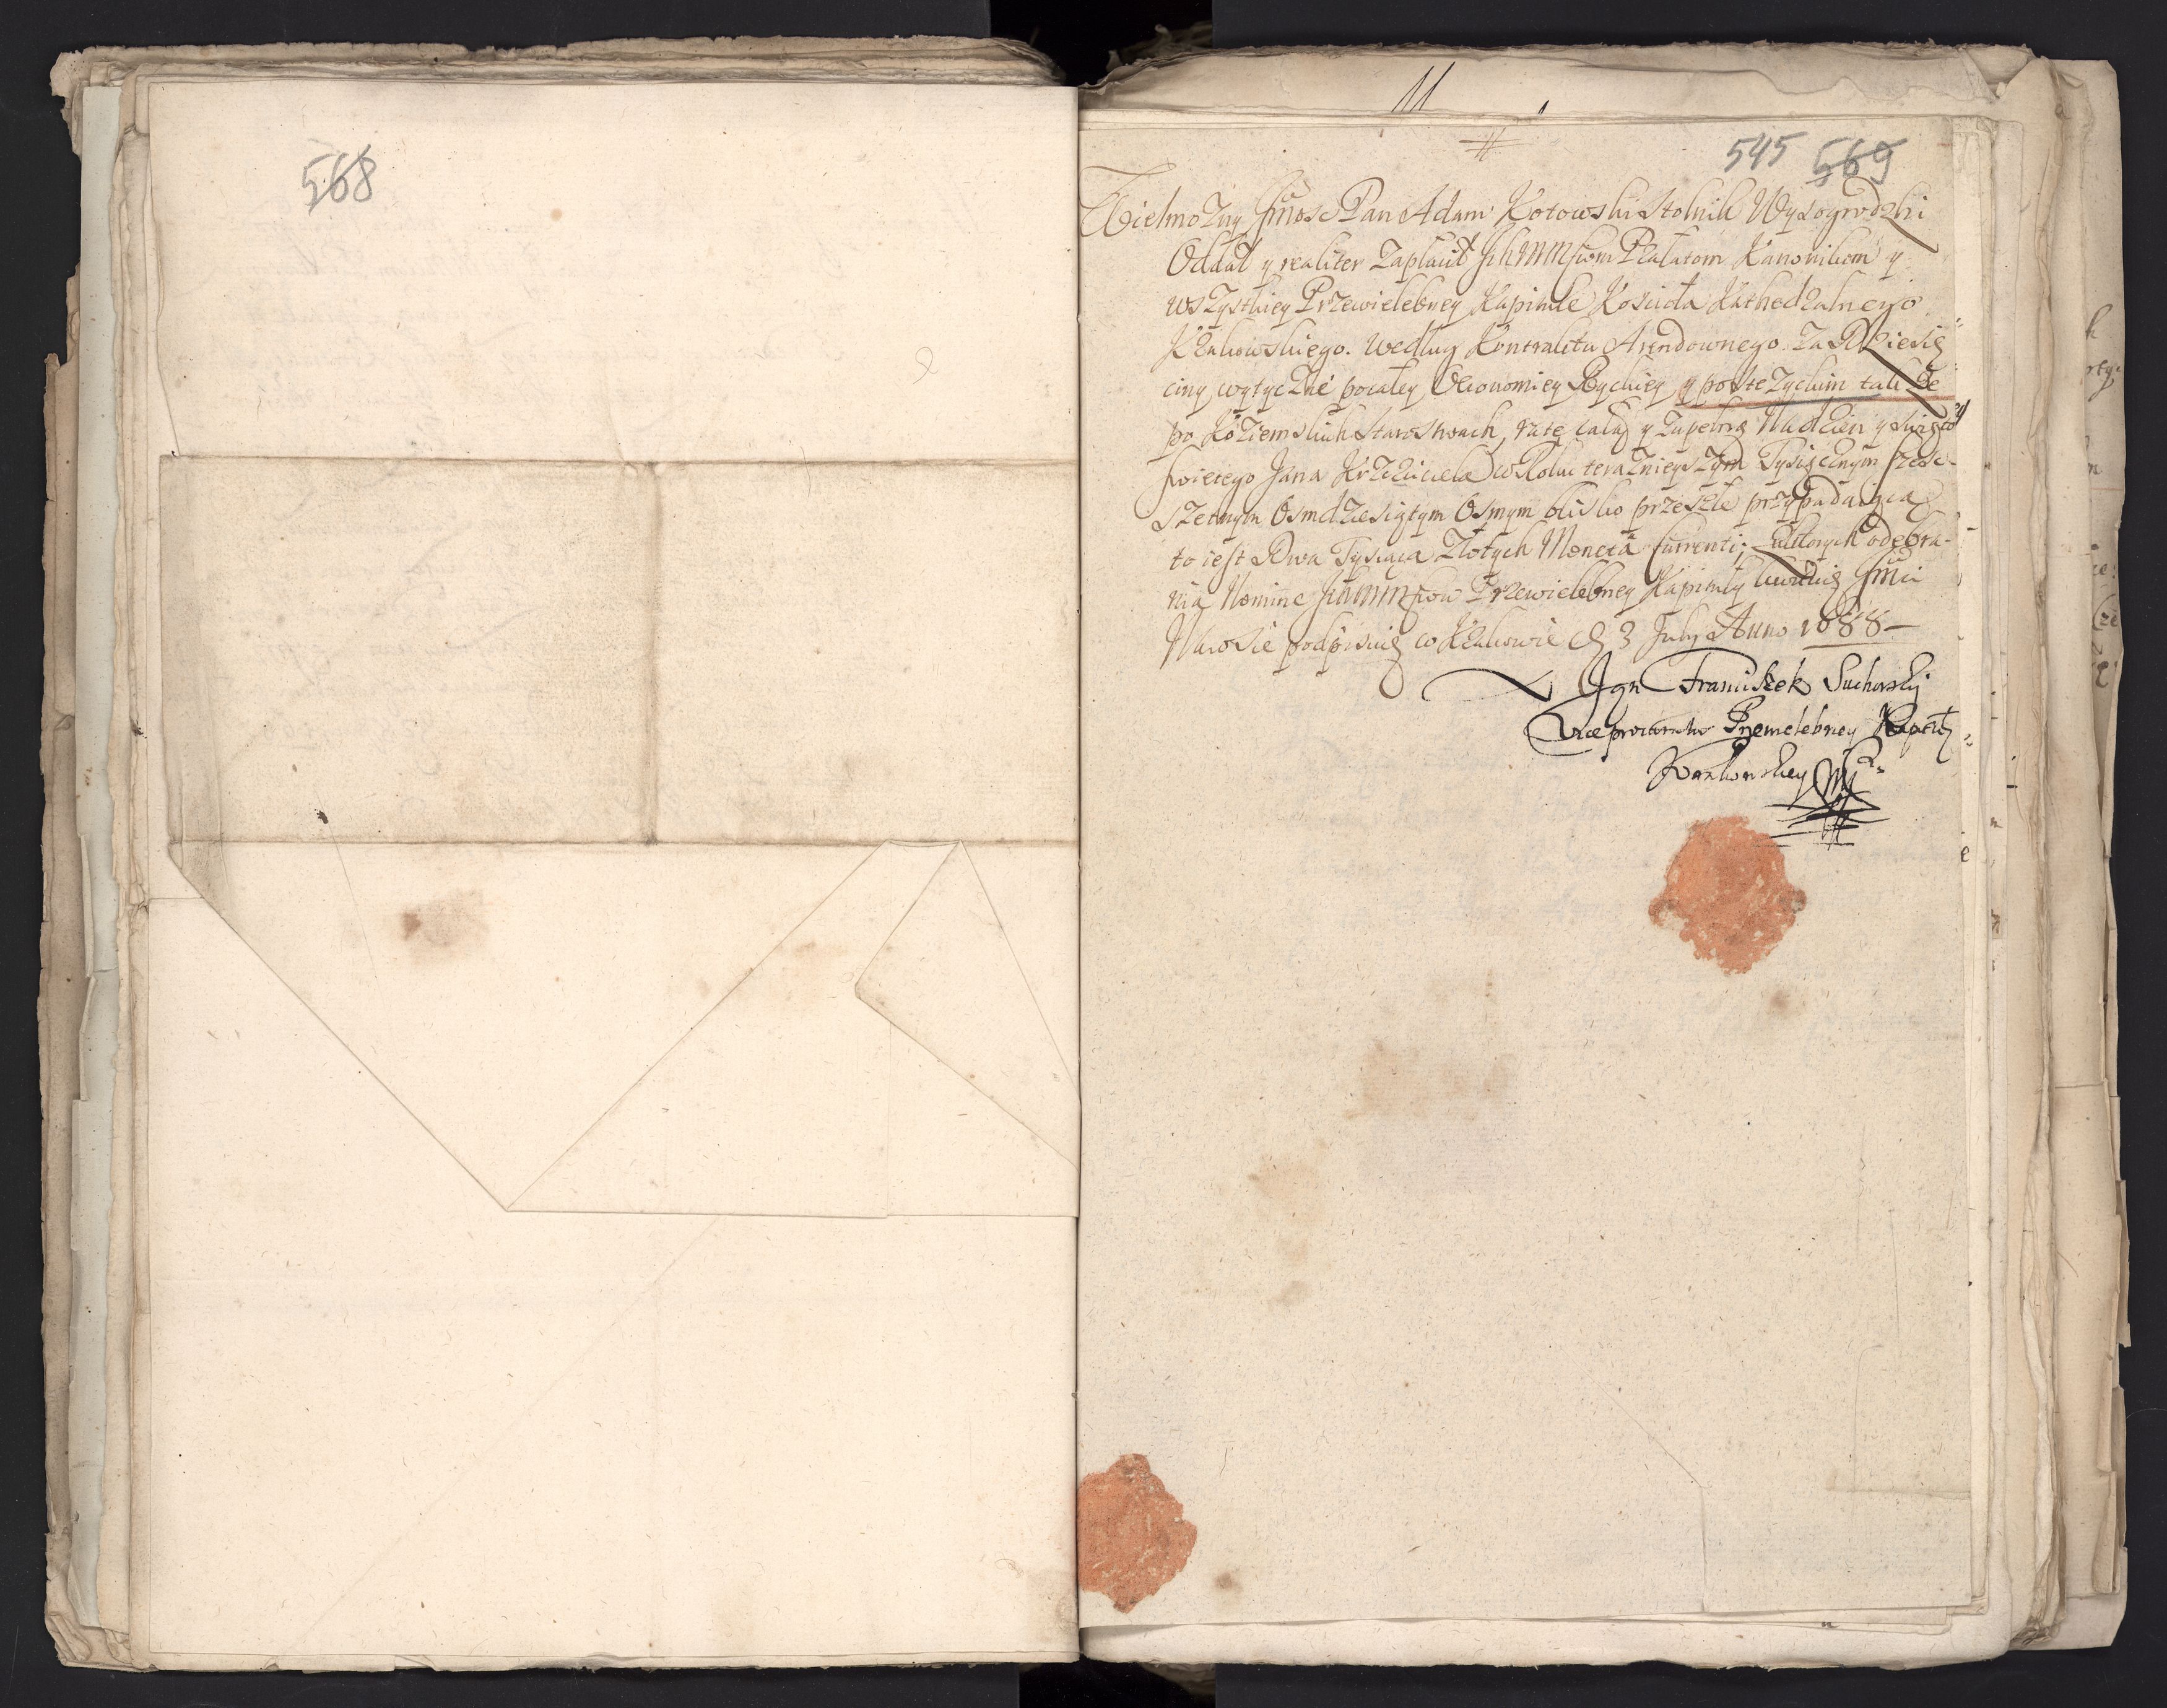 568
11
545 569
Wielmozny Jmosc Pan Adam Kotowski Stolnik Wysogrodzki
Oddał y realiter zapłacił Ichmmsciom Prałatom Kanonikom y
wszystkiey Przewielebney Kapitule Koscioła Kathedralnego
Krakowskiego. według Kontraktu Arendownego. Za Dziesię
ciny wytyczne pocałey Oeconomiey Ryckiey y po Stezyckim takze
po Koziemskich Starostwach, ratę całą y zupełną Nadzien y Swięto
swietego Jana Krzciciela w Roku teraznieyszym Tysiącznym szesc-
szetnym Osmdziesiątym Osmym blisko przeszłe przypadaiącą
to iest Dwa Tysiąca Złotych Moneta currenti; Zktorych odebra-
nia Nomine Ichmmsciow Przewielebney Kapituły kwituię Jmci
Narosie podpisuię w Krakowie D 3 July Anno 1688
Jgn Franciszek Suchorski
Viceprocurator Przewielebney Kapituły
Krakowskiey